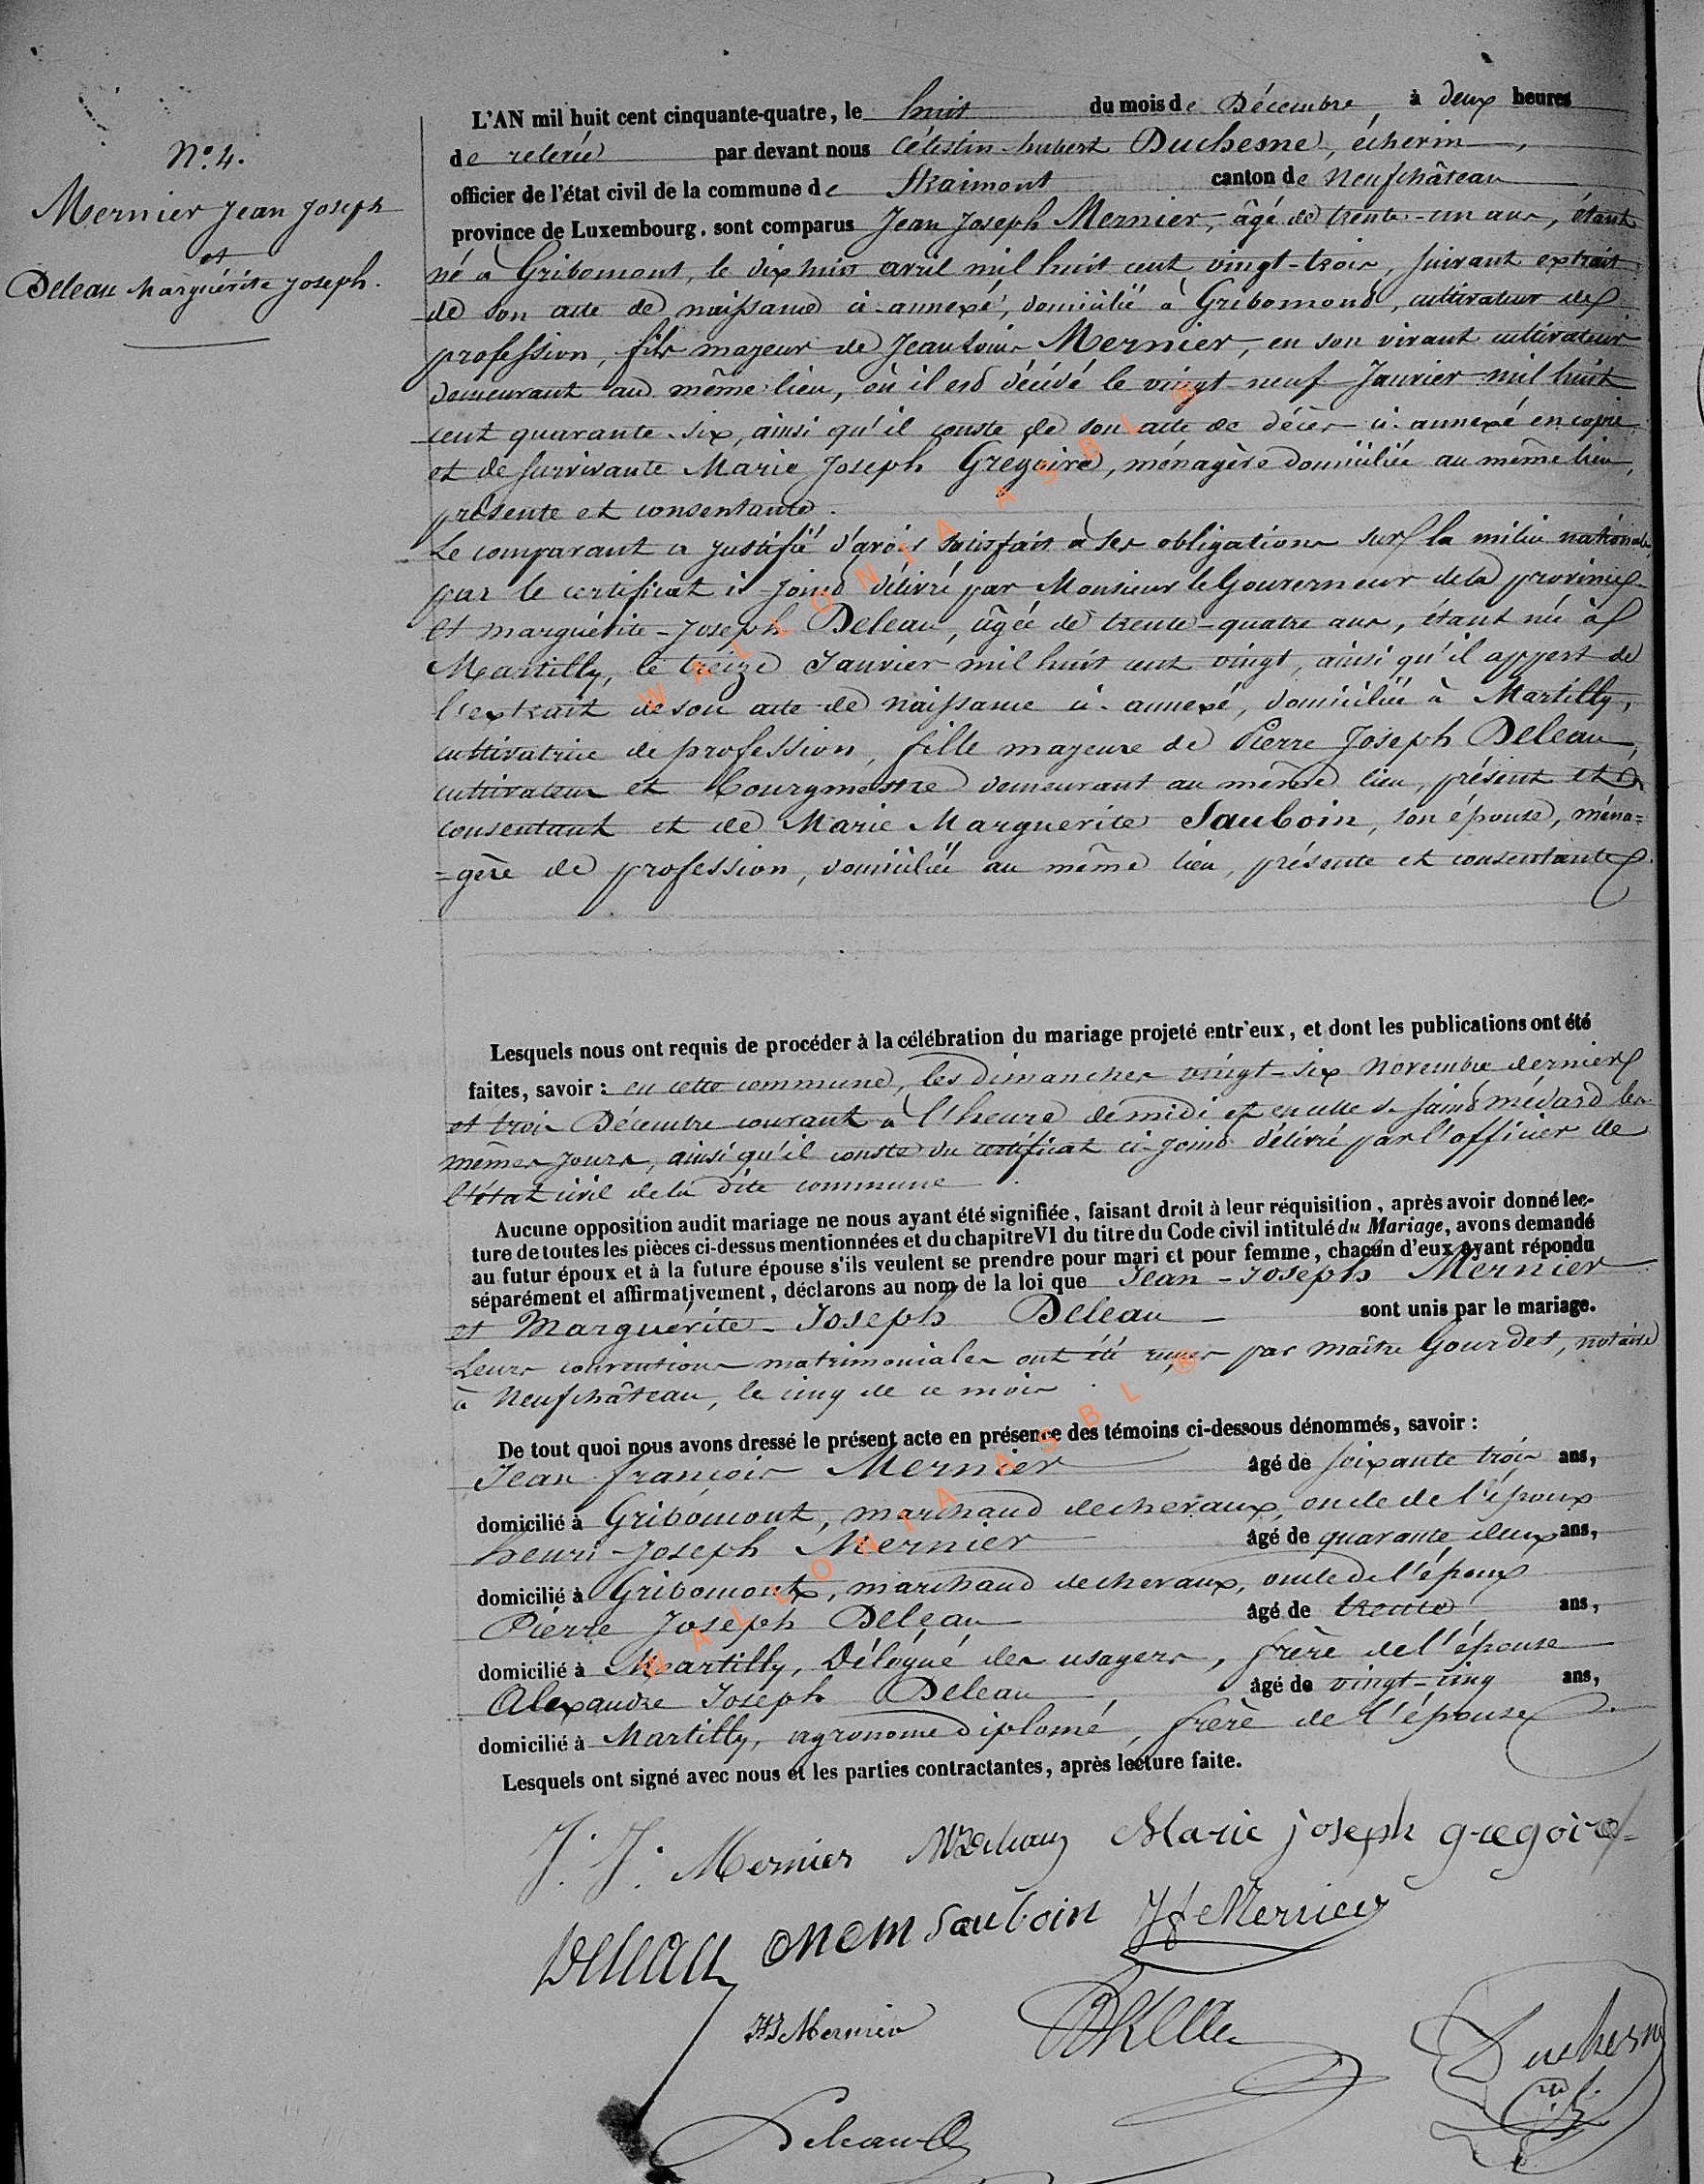 N.º 4.
Mernier Jean Joseph
et
Deleau Marguérite Joseph.
L'AN mil huit cent cinquante-quatre, le huit du mois de Décembre à deux heures
de relevée par devant nous Célestin hubert Duchesne, échevin,
officier de l'état civil de la commune de Straimont canton de Neufchâteau
province de Luxembourg, sont comparus Jean Joseph Mernier, âgé de trente-un ans, étant
né à Gribomont, le dix huit avril mil huit cent vingt-trois, suivant extrait
de son acte de naissance ci-annexé, domicilié à Gribomont, cultivateur de
profession, fils majeur de Jean Louis Mernier, en son vivant cultivateur
demeurant au même lieu, où il est décédé le vingt neuf Janvier mil huit
cent quarante-six, ainsi qu'il conste de son acte de décès ci-annexé en copie
et de survivante Marie Joseph Gregoire, ménagère domiciliée au même lieu,
présente et consentante.
Le comparant a justifié d'avoir satisfait à ses obligations sur la milice nationale
par le certificat ci-joint délivré par Monsieur le Gouverneur de la province
Et marguérite-Joseph Deleau, âgée de trente-quatre ans, étant née à
Martilly, le treize Janvier mil huit cent vingt, ainsi qu'il appert de
l'extrait de son acte de naissance ci-annexé, domiciliée à Martilly,
cultivatrice de profession, fille majeure de Pierre Joseph Deleau,
cultivateur et Bourgmestre demeurant au même lieu, présent et
consentant et de Marie Marguerite Sauboin, son épouse, ména=
=gère de profession, domiciliée au même lieu, présente et consentante.
Lesquels nous ont requis de procéder à la célébration du mariage projeté entr'eux, et dont les publications ont été
faites, savoir : en cette commune, les dimanches vingt-six Novembre dernier
et trois Décembre courant à l'heure de midi et en celle de Saint médard les
mêmes jours, ainsi qu'il conste du certificat ci-joint délivré par l'officier de
l'état civil de la dite commune.
Aucune opposition audit mariage ne nous ayant été signifiée, faisant droit à leur réquisition, après avoir donné lec-
ture de toutes les pièces ci-dessus mentionnées et du chapitre VI du titre du Code civil intitulé du Mariage, avons demandé
au futur époux et à la future épouse s'ils veulent se prendre pour mari et pour femme, chacun d'eux ayant répondu
séparément et affirmativement, déclarons au nom de la loi que Jean-Joseph Mernier
et Marguérite-Joseph Deleau sont unis par le mariage.
Leurs conventions matrimoniales ont été reçues par maître Gourdet, notaire
à Neufchâteau, le cinq de ce mois.
De tout quoi nous avons dressé le présent acte en présence des témoins ci-dessous dénommés, savoir :
Jean françois Mernier âgé de soixante trois ans,
domicilié à Gribomont, marchand de chevaux, oncle de l'époux
henri-Joseph Mernier âgé de quarante deux ans,
domicilié à Gribomont, marchand de chevaux, oncle de l'époux
Pierre Joseph Deleau âgé de trente ans,
domicilié à Martilly, Délégué des usagers, frère de l'épouse
Alexandre Joseph Deleau âgé de vingt-cinq ans,
domicilié à Martilly, agronome diplomé, frère de l'épouse.
Lesquels ont signé avec nous et les parties contractantes, après lecture faite.
J. J. Mernier MDeleau Marie joseph gregoire
Deleau Sauboin Mernier
HJ Mernier
Duchesne
Deleau
WALLONIA ASBL ®
WALLONIA ASBL ®